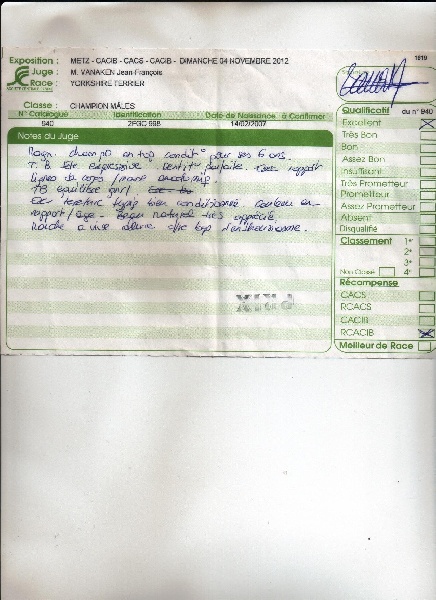 Exposition : METZ - CACIB - CACS - CACIB - DIMANCHE 04 NOVEMBRE 2012
Juge : M. VANAKEN Jean-François
Race : YORKSHIRE TERRIER
Classe : CHAMPION MÂLES
N° Catalogue Identification Date de Naissance à Confirmer
940 2FGC 998 14/02/2007
Notes du Juge
champ° en top condit° pour ses 6 ans.
T. B. tête expressive. Dentit° parfaite. rapport
TB équilibre gnrl
texture bien conditionné Couleur en
rapport/age - Beau naturel très apprécié.
Marche a vive allure avec bcp d'enthousiasme.
PRIX
1819
Qualificatif du n° 940
Excellent
Très Bon
Bon
Assez Bon
Insuffisant
Très Prometteur
Prometteur
Assez Prometteur
Absent
Disqualifié
Classement 1er
2e
3e
Non Classé 4e
Récompense
CACS
RCACS
CACIB
RCACIB
Meilleur de Race